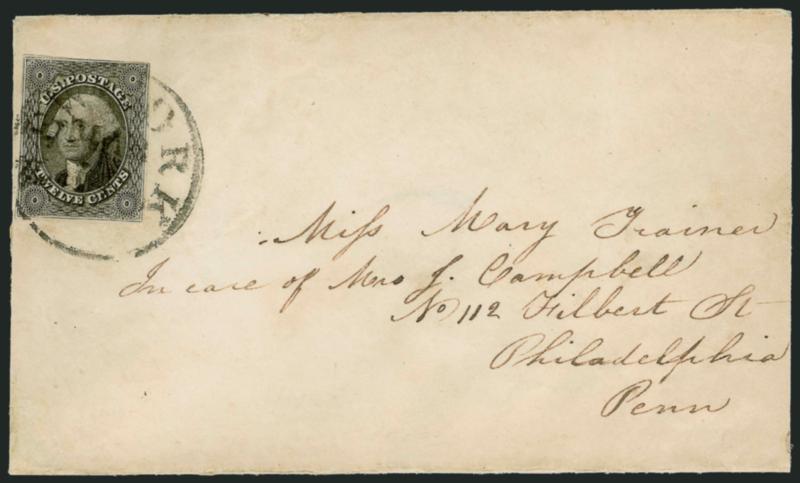 U.S. POSTAGE
TWELVE CENTS
YORK
Miss Mary Trainer
In care of Mrs J. Campbell
No 112 Filbert St
Philadelphia
Penn